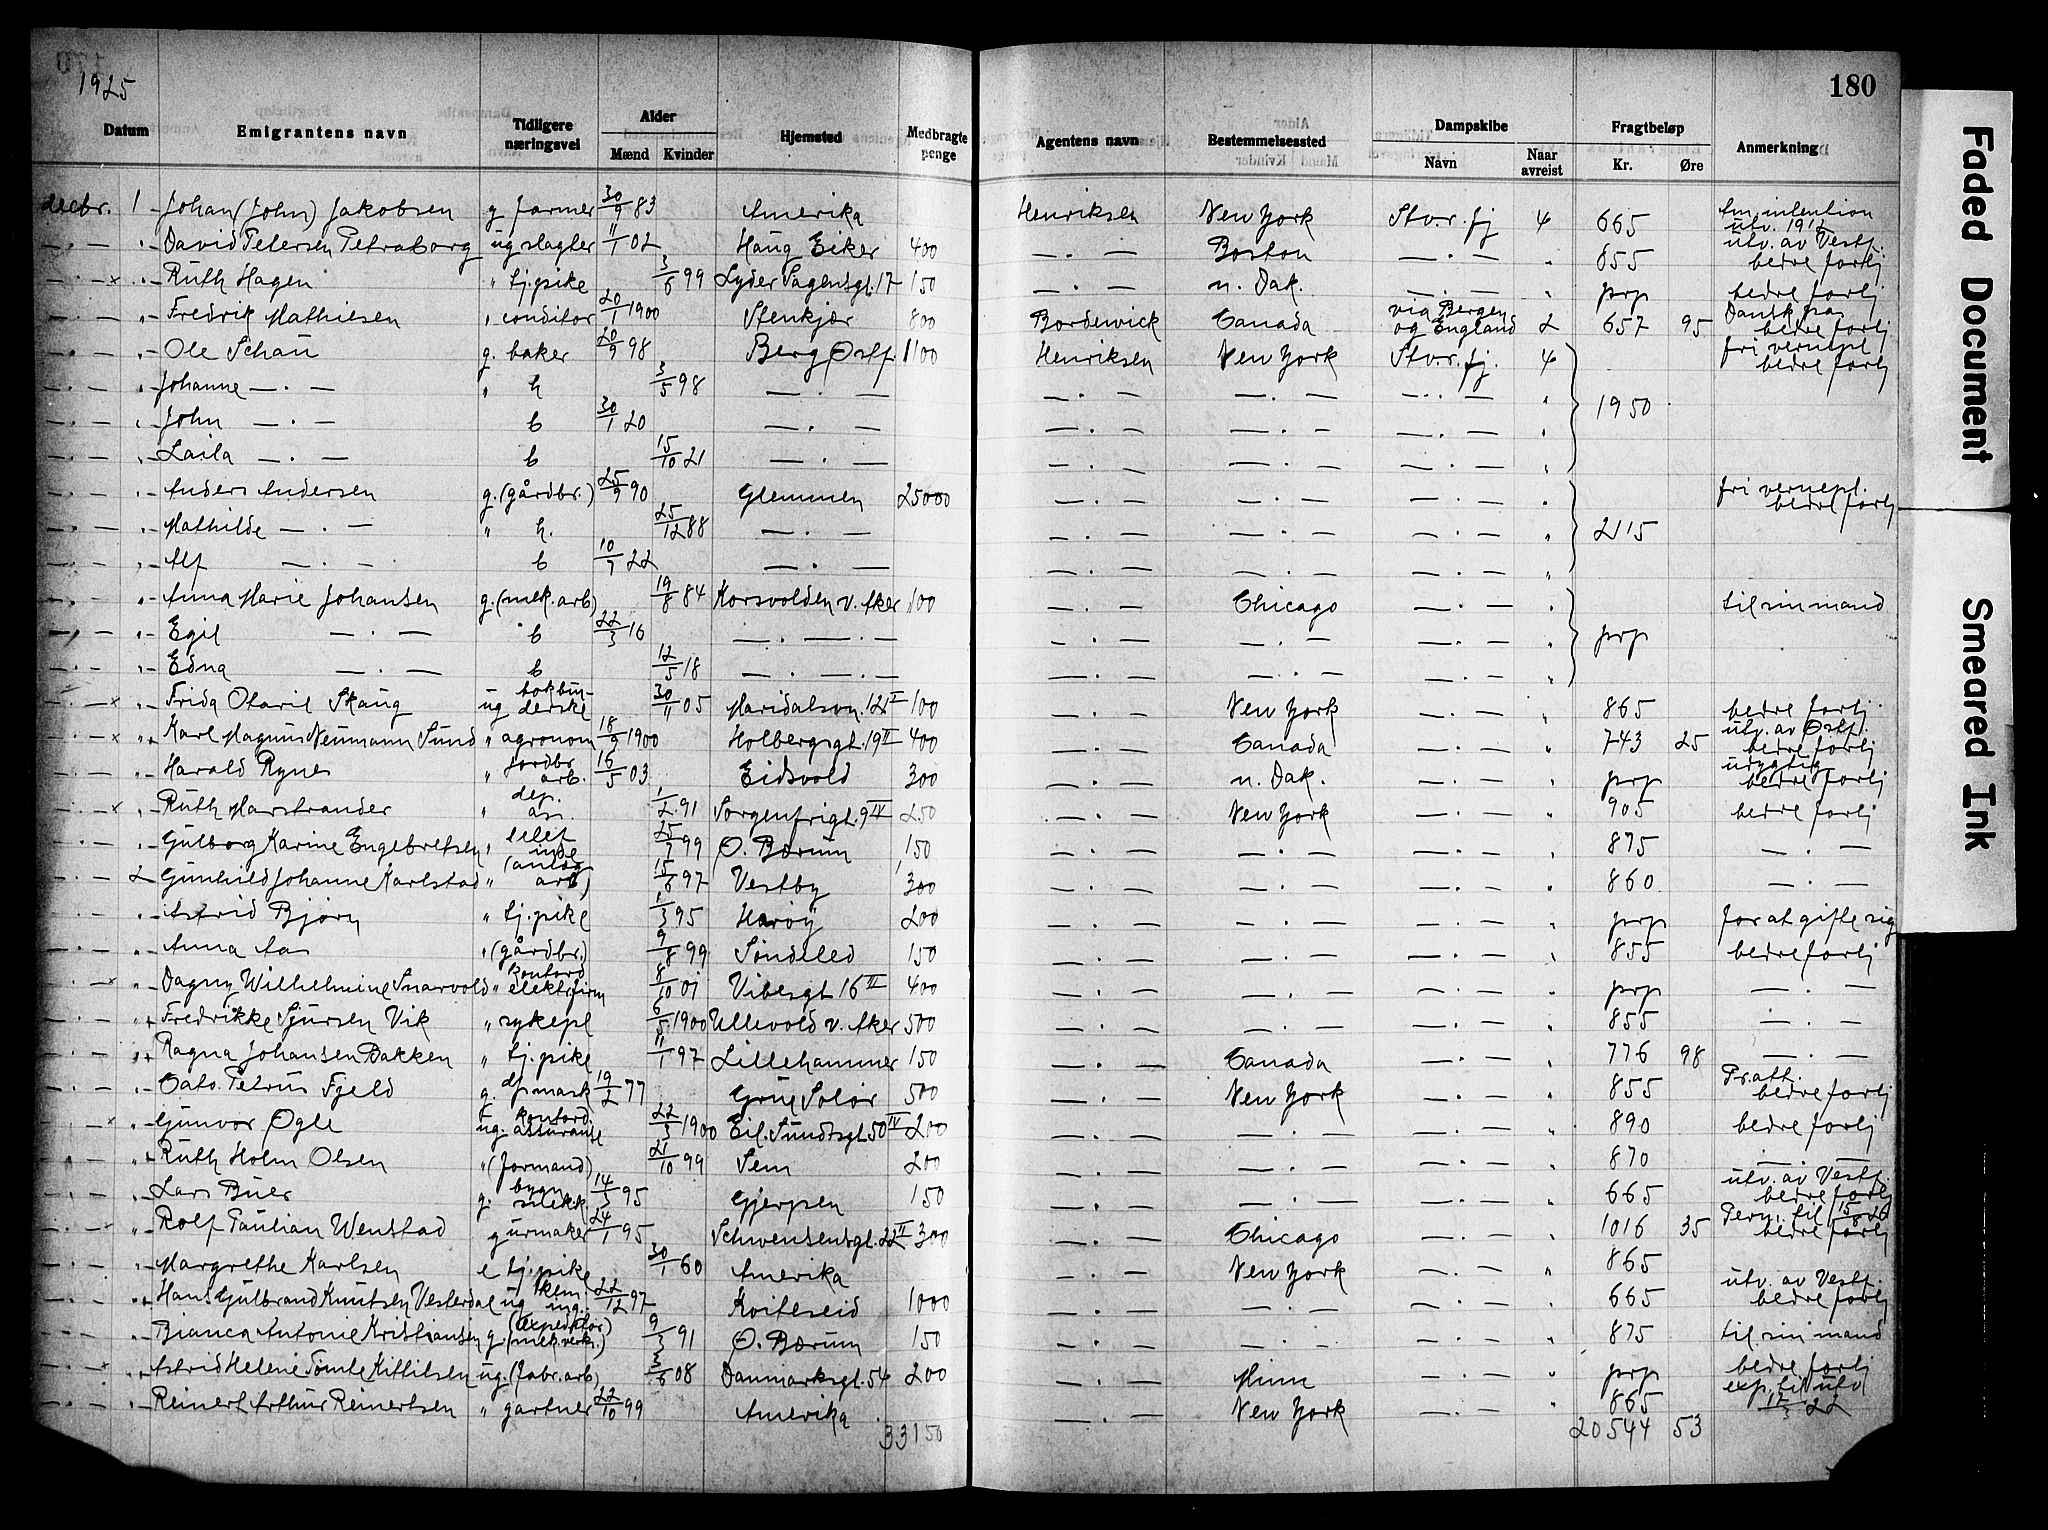 1925
180
Datum Emigrantens navn Tidligere næringsvei Alder Mænd Kvinder Hjemsted Medbragte penge Agentens navn Bestemmelsessted Dampskibe Navn Naar avreist Fragtbeløp Kr. Øre Anmerkning
decbr. 1 Johan (John) Jakobsen g farmer 30/9 83 Amerika Henriksen New York Stvr. fj 4 665 am. intention utv. 1912
— · — " David Petersen Petraborg ug slagter 11/1 02 Haug Eiker 400 — · — Boston — · — " 655 utv. av Vestf. bedre forlj
— · — x " Ruth Hagen " tj. pike 3/6 99 Lyder Sagensgt. 17 150 — · — n. Dak. — · — " prp bedre forlj
— · — " Fredrik Mathiesen " conditor 20/1 1900 Stenkjær 800 Bordewick Canada via Bergen og England 2 657 95 Dansk pas bedre forlj
— · — " Ole Schau g. baker 20/9 98 Berg Østf. 1100 Henriksen New York Stvr. fj. 4 fri vernepl. bedre forlj
— · — " Johanne — · — " h 3/5 98 — · — — · — — · — — · — " 1950
— · — " John — · — b 30/1 20 — · — — · — — · — — · — "
— · — " Laila — · — b 15/10 21 — · — — · — — · — — · — "
— · — " Anders Andersen g. (gårdbr.) 25/9 90 Glemmen 25000 — · — — · — — · — " fri vernepl. bedre forlj
— · — " Mathilde — · — " h. 25/12 88 — · — — · — — · — — · — " 2115
— · — " Alf — · — b 10/7 22 — · — — · — — · — — · — "
— · — " Anna Marie Johansen g. (mek. arb) 19/8 84 Korsvolden v. Aker 100 — · — Chicago — · — " til sin mand
— · — " Egil — · — b 22/3 16 — · — · — — · — — · — — · — " prp
— · — " Edna — · — b 12/5 18 — · — · — — · — — · — — · — "
— · — x " Frida Otavie Skaug ug bokbinderske 30/11 05 Maridalsvn. 121 I 100 — · — New York — · — " 865 bedre forlj.
— · — x " Karl Magnus Neumann Sund " agronom 18/9 1900 Holbergsgt. 19 II 400 — · — Canada — · — " 743 25 utv. av Østf. bedre forlj
— · — " Harald Rynes " jordbr. arb. 16/5 03 Eidsvold 300 — · — n. Dak. — · — " prp udygtig bedre forlj
— · — x " Ruth Marstrander " 1/2 91 Sorgenfrigt. 9 IV 250 — · — New York — · — " 905 bedre forlj
— · — " Gulborg Karine Engebretsen " 25/7 99 Ø. Bærum 150 — · — — · — — · — " 875 — · —
— · — 2 Gunhild Johanne Karlstad " (anlæg arb) 15/6 97 Vestby 300 — · — — · — — · — " 860 — · —
— · — " Astrid Bjørn " tj. pike 1/3 95 Harøy 200 — · — — · — — · — " prp for at gifte sig
— · — " Anna Aas " (gårdbr.) 9/8 99 Søndeled 150 — · — — · — — · — " 855 bedre forlj
— · — x Dagny Wilhelmine Snarvold " kontord elektr. firm 8/10 01 Vibesgt 16 III 400 — · — — · — — · — " prp — · —
— · — " Fredrikke Sjursen Vik " sykepl 6/5 1900 Ullevold v. Aker 500 — · — — · — — · — " 855 — · —
— · — " Ragna Johansen Bakken " tj. pike 11/1 97 Lillehammer 150 — · — Canada — · — " 776 98 — · —
— · — " Cato Petrus Fjeld g. 19/2 77 Grue Solør 500 — · — New York — · — " 855 Pr. att. bedre forlj
— · — x " Gunvor Ogle ug. kontord. assuranse 22/3 1900 Eil. Sundtsgt. 50 IV 200 — · — — · — — · — " 890 bedre forlj
— · — " Ruth Holm Olsen " (formand) 21/10 99 Sem 200 — · — — · — — · — " 870 — · —
— · — " Lars Buer g. bygn. snekk. 14/3 95 Gjerpen 150 — · — — · — — · — " 665 utv. av Vestf. bedre forlj
— · — x " Rolf Paulian Wenstad g urmaker 24/1 95 Schwensensgt. 22 II 300 — · — Chicago — · — " 1016 35 Perm. til 15/8 26 bedre forlj
— · — " Margrethe Karlsen e tj. pike 30/1 60 Amerika — · — New York — · — " 865
— · — " Hans Gulbrand Knutsen Vesterdal ug kem. ing. 22/12 97 Kviteseid 1000 — · — — · — — · — " 665 utv. av Vestf. bedre forlj
— · — " Bianca Antonie Kristiansen g. (expeditør) (mek. verk.) 9/3 91 Ø. Bærum 150 — · — — · — — · — " 875 til sin mand
— · — x " Astrid Helene Tømte Kittilsen ug. (fabr. arb) 3/6 08 Danmarksgt. 54 200 — · — Minn — · — " prp bedre forlj
— · — " Reinert Arthur Reinertsen " gartner 22/10 99 Amerika — · — New York — · — " 865 exp. til utv 17/3 22
33150 20544 53
Faded Document
Smeared Ink